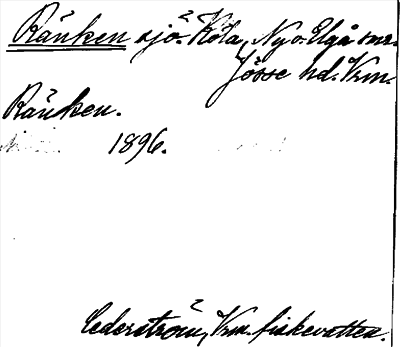 Räuken sjö. Köla, Ny o. Elgå snr.
Jösse hd. Vrm.
Räuken.
1896.
Cederström, Vrm. fiskevatten.